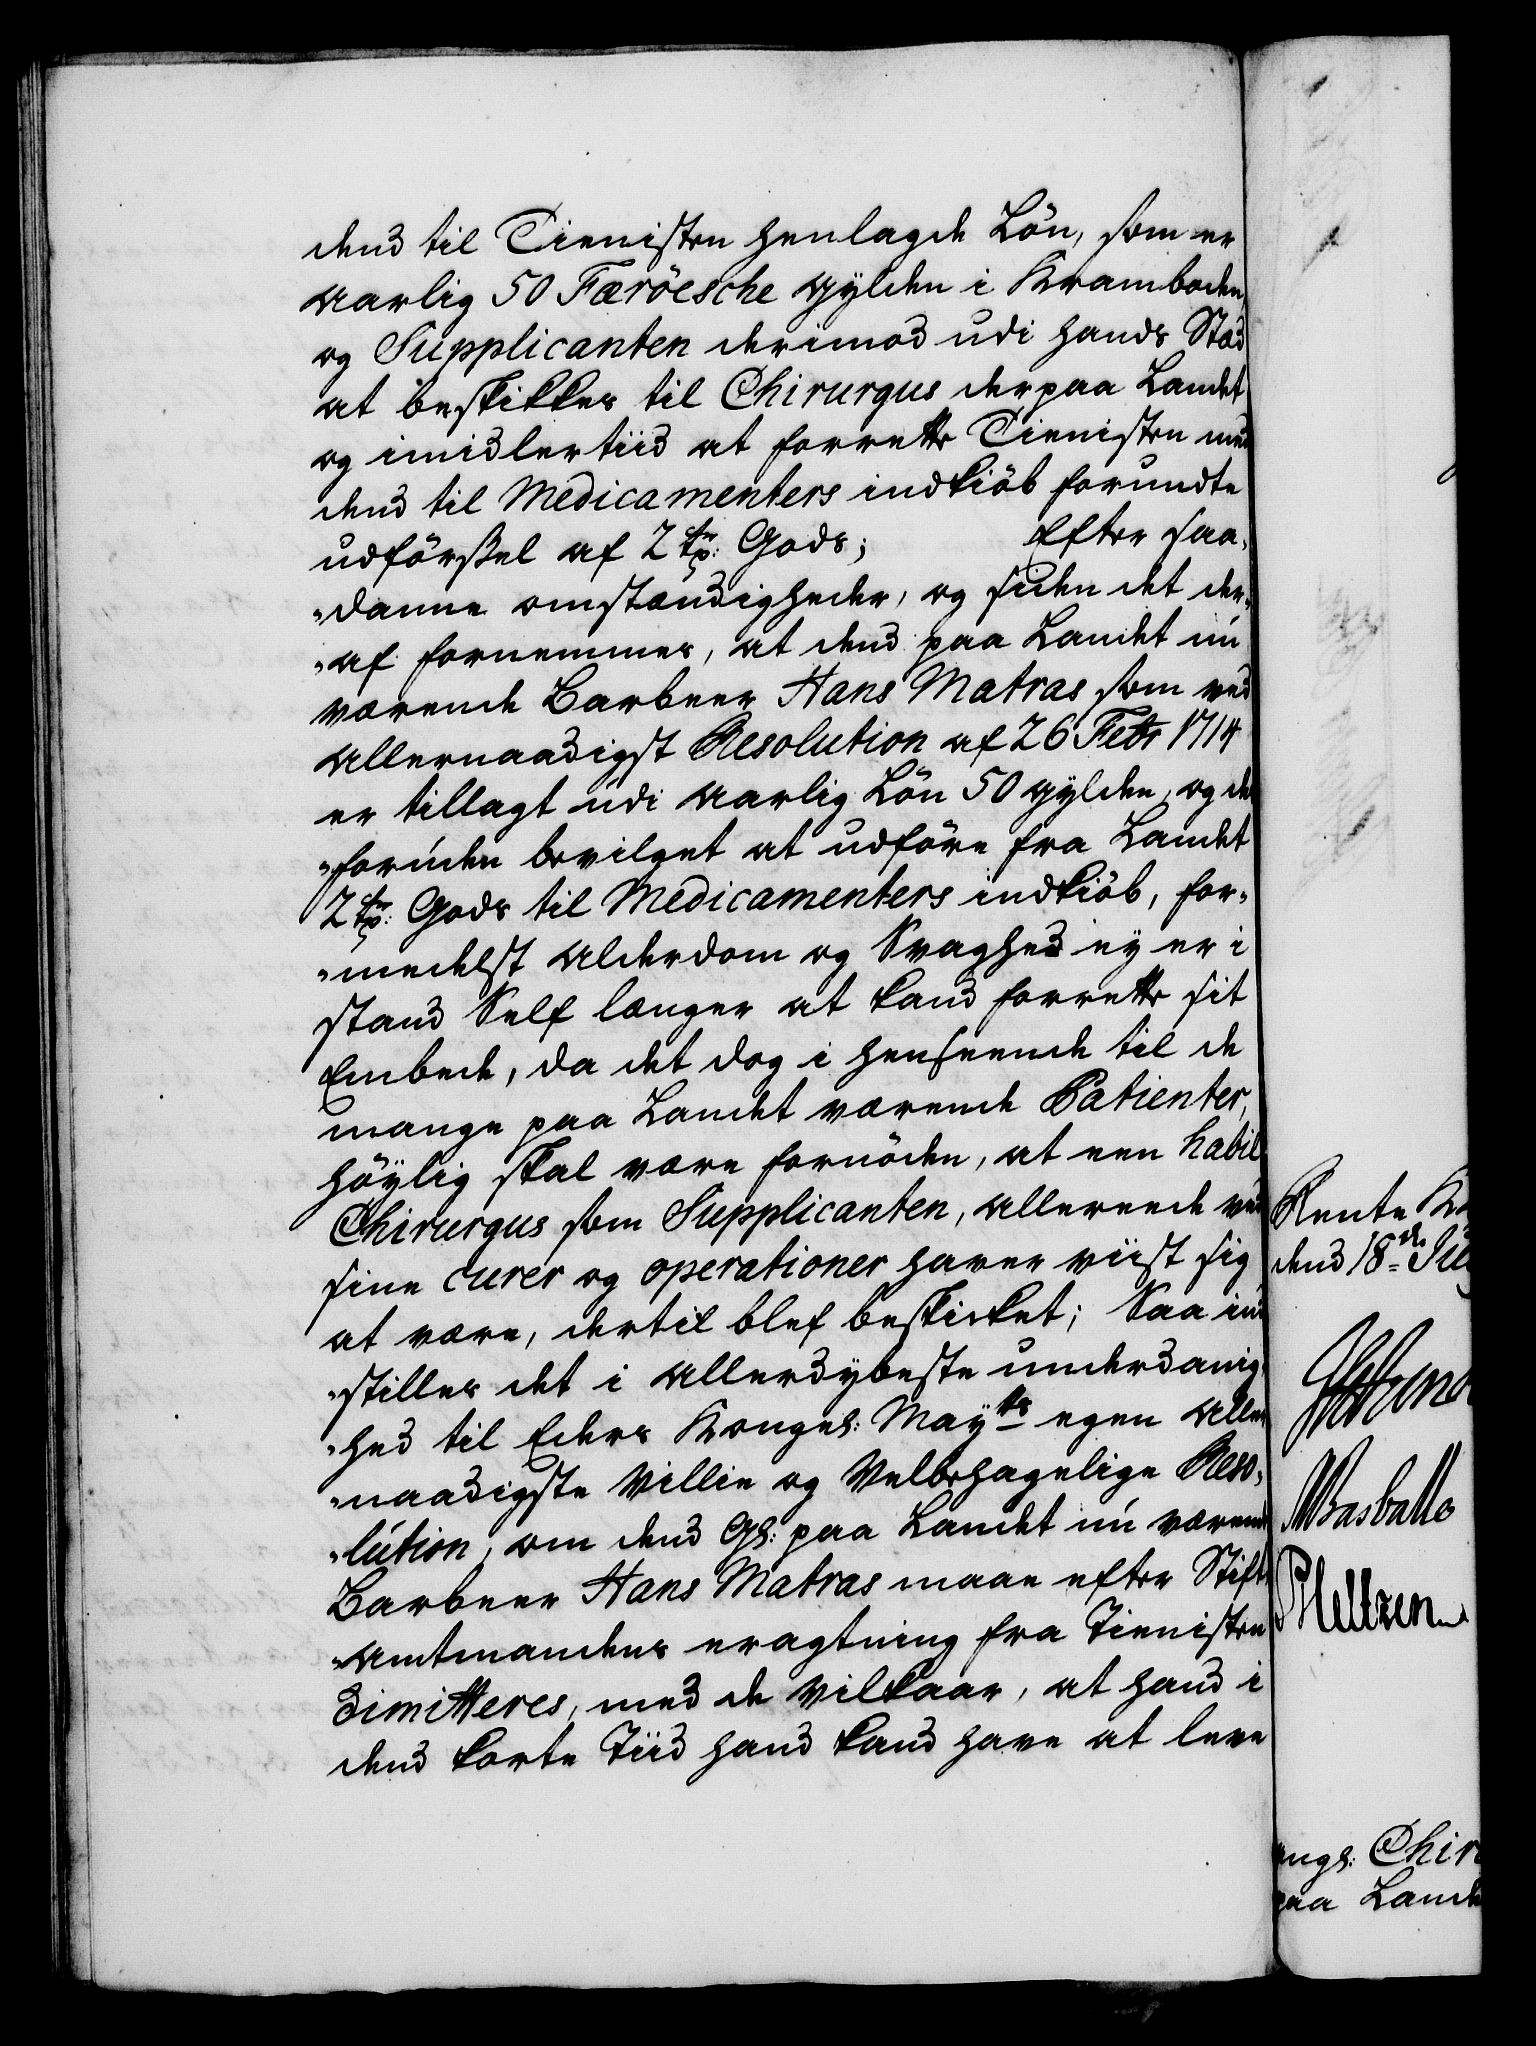 dend til Tienisten henlagde Lön, som er
aarlig 50 Færöesche gylden i Kramboden
og Supplicanten derimod udi hands Stæd
at beskikkes til Chirurgus der paa Landet
og imidlertiid at forrette Tienisten med
dend til Medicamenters indkiöb forundte
udförsel af 2 Gods; Efter saa-
"danne omstændigheder, og siden det der-
"af fornemmes, at dend paa Landet nu
værende Barbeer Hans Matras som ved
allernaadigst Resolution af 26 Febr 1714
er tillagt udi aarlig Lön 50 gylden, og des
"foruden bevilget at udföre fra Landet
2 Gods til Medicamenters indkiöb, for-
"medelst alderdom og Svaghed ey er i
stand Self længer at kand forrette sit
Embede, da det dog i henseende til de
mange paa Landet værende Patienter,
höylig skal være fornöden, at een habil
Chirurgus som Supplicanten, allereede ved
sine curer og operationer haver viist sig
at være, dertil blef beskicket; Saa ind
"stilles det i allerdybeste underdanig-
"hed til Eders Kongel: Mayts egen aller
"naadigste Villie og Velbehagelige Reso-
"lution, om dend Gl: paa Landet nu værende
Barbeer Hans Matras maae efter Stift
"amtmandens eragtning fra Tienisten
dimitteres, med de Vilkaar, at hand i
dend korte Tiid hand kand have at leve
Rente K
dend 18de Ju
WBasballe
PHeltzen
ongl: Chir
paa Lande